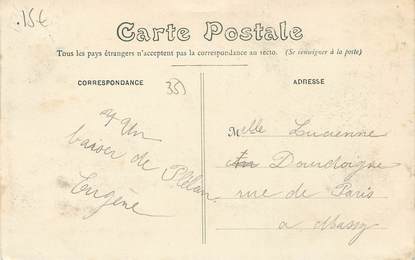 .15€
Carte Postale
Tous les pays étrangers n'acceptent pas la correspondance au recto. (Se renseigner à la poste)
CORRESPONDANCE
ADRESSE
35
Un
baiser de Plélan
Eugène
Melle Lucienne
Dourdoigne
rue de Paris
a Massy